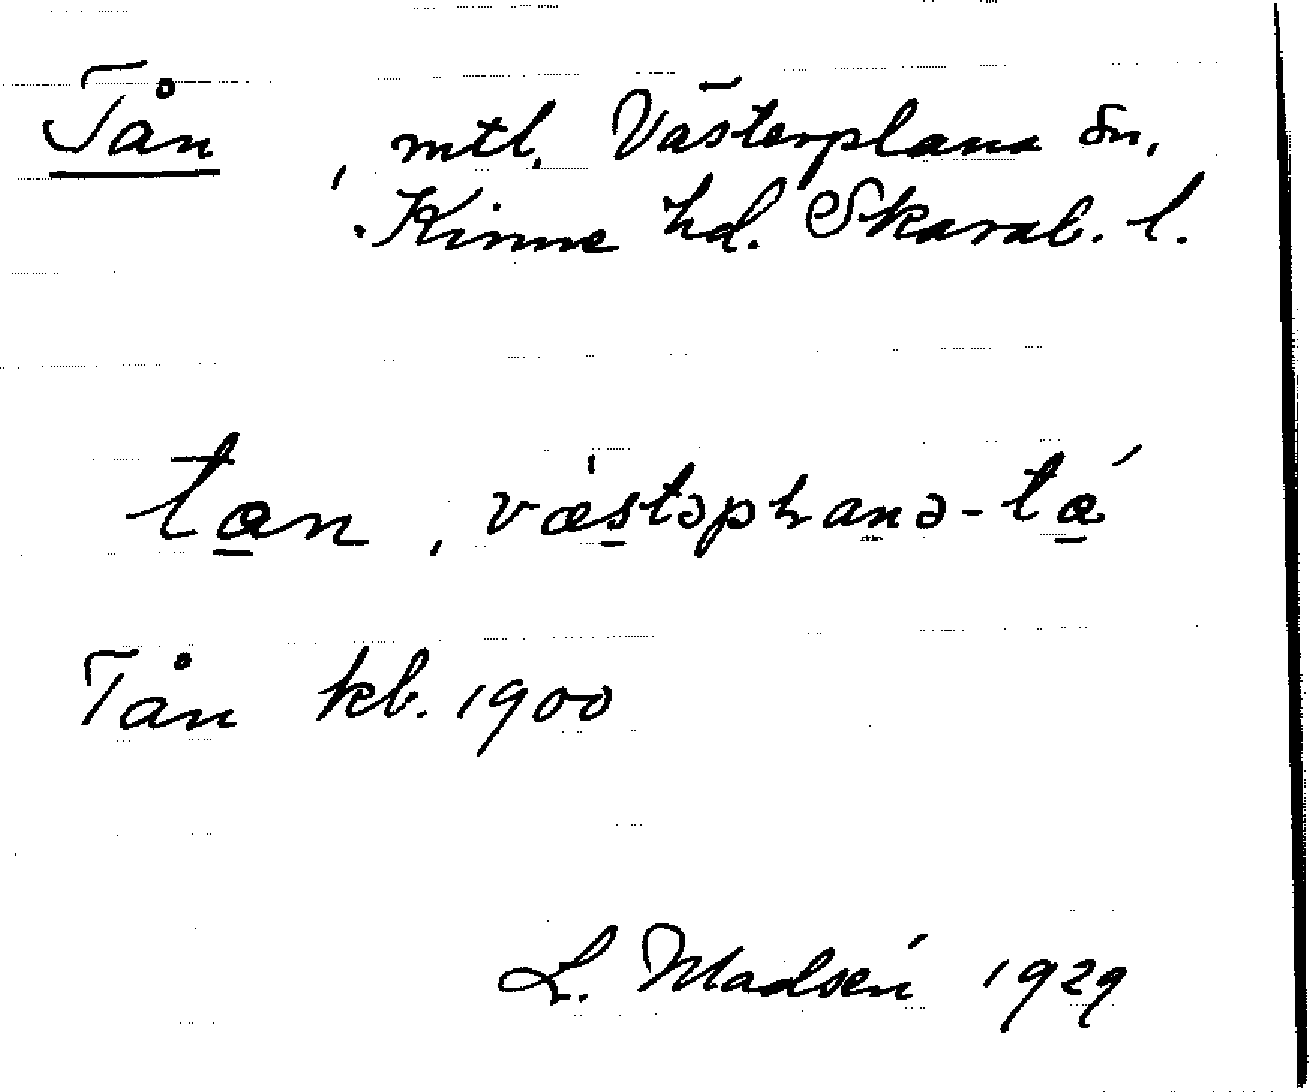 Tån, mtl. Västerplana sn,
Kinne hd. Skarab. l.
tæn, væstəpɫanə-tǽ
Tån kb. 1900
L. Madsén 1929